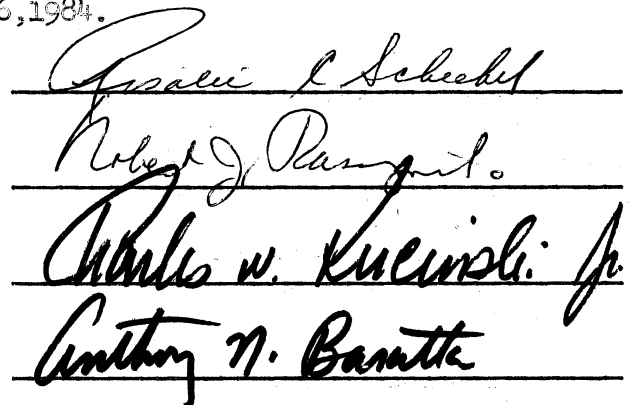 6,1984.
Rosalie C Scheckel
Robert J.
Charles W. Kucinski Jr.
Anthony N. Baratta